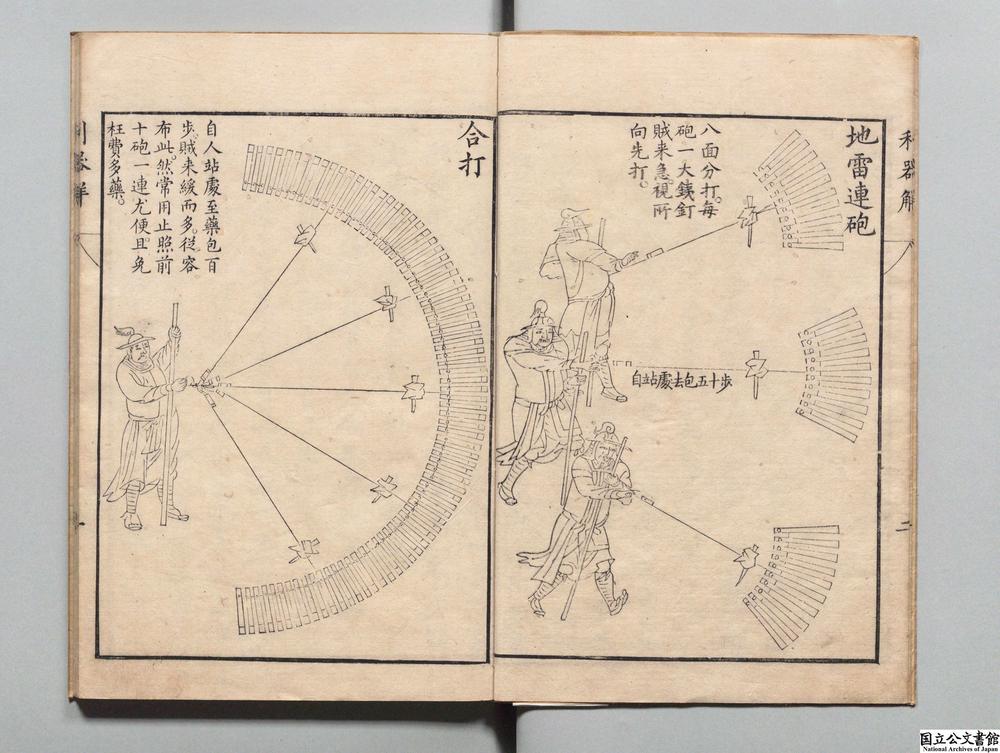 利器解
地雷連砲
八面分打。每
砲一大鉄釘
賊来急視所
向先打。
自站處去包五十步
二
合打
自人站處至藥包百
步。賊来緩而多。從容
布此。然常用止照前
十砲一連尤便且免
枉費多藥。
国立公文書館
National Archives of Japan